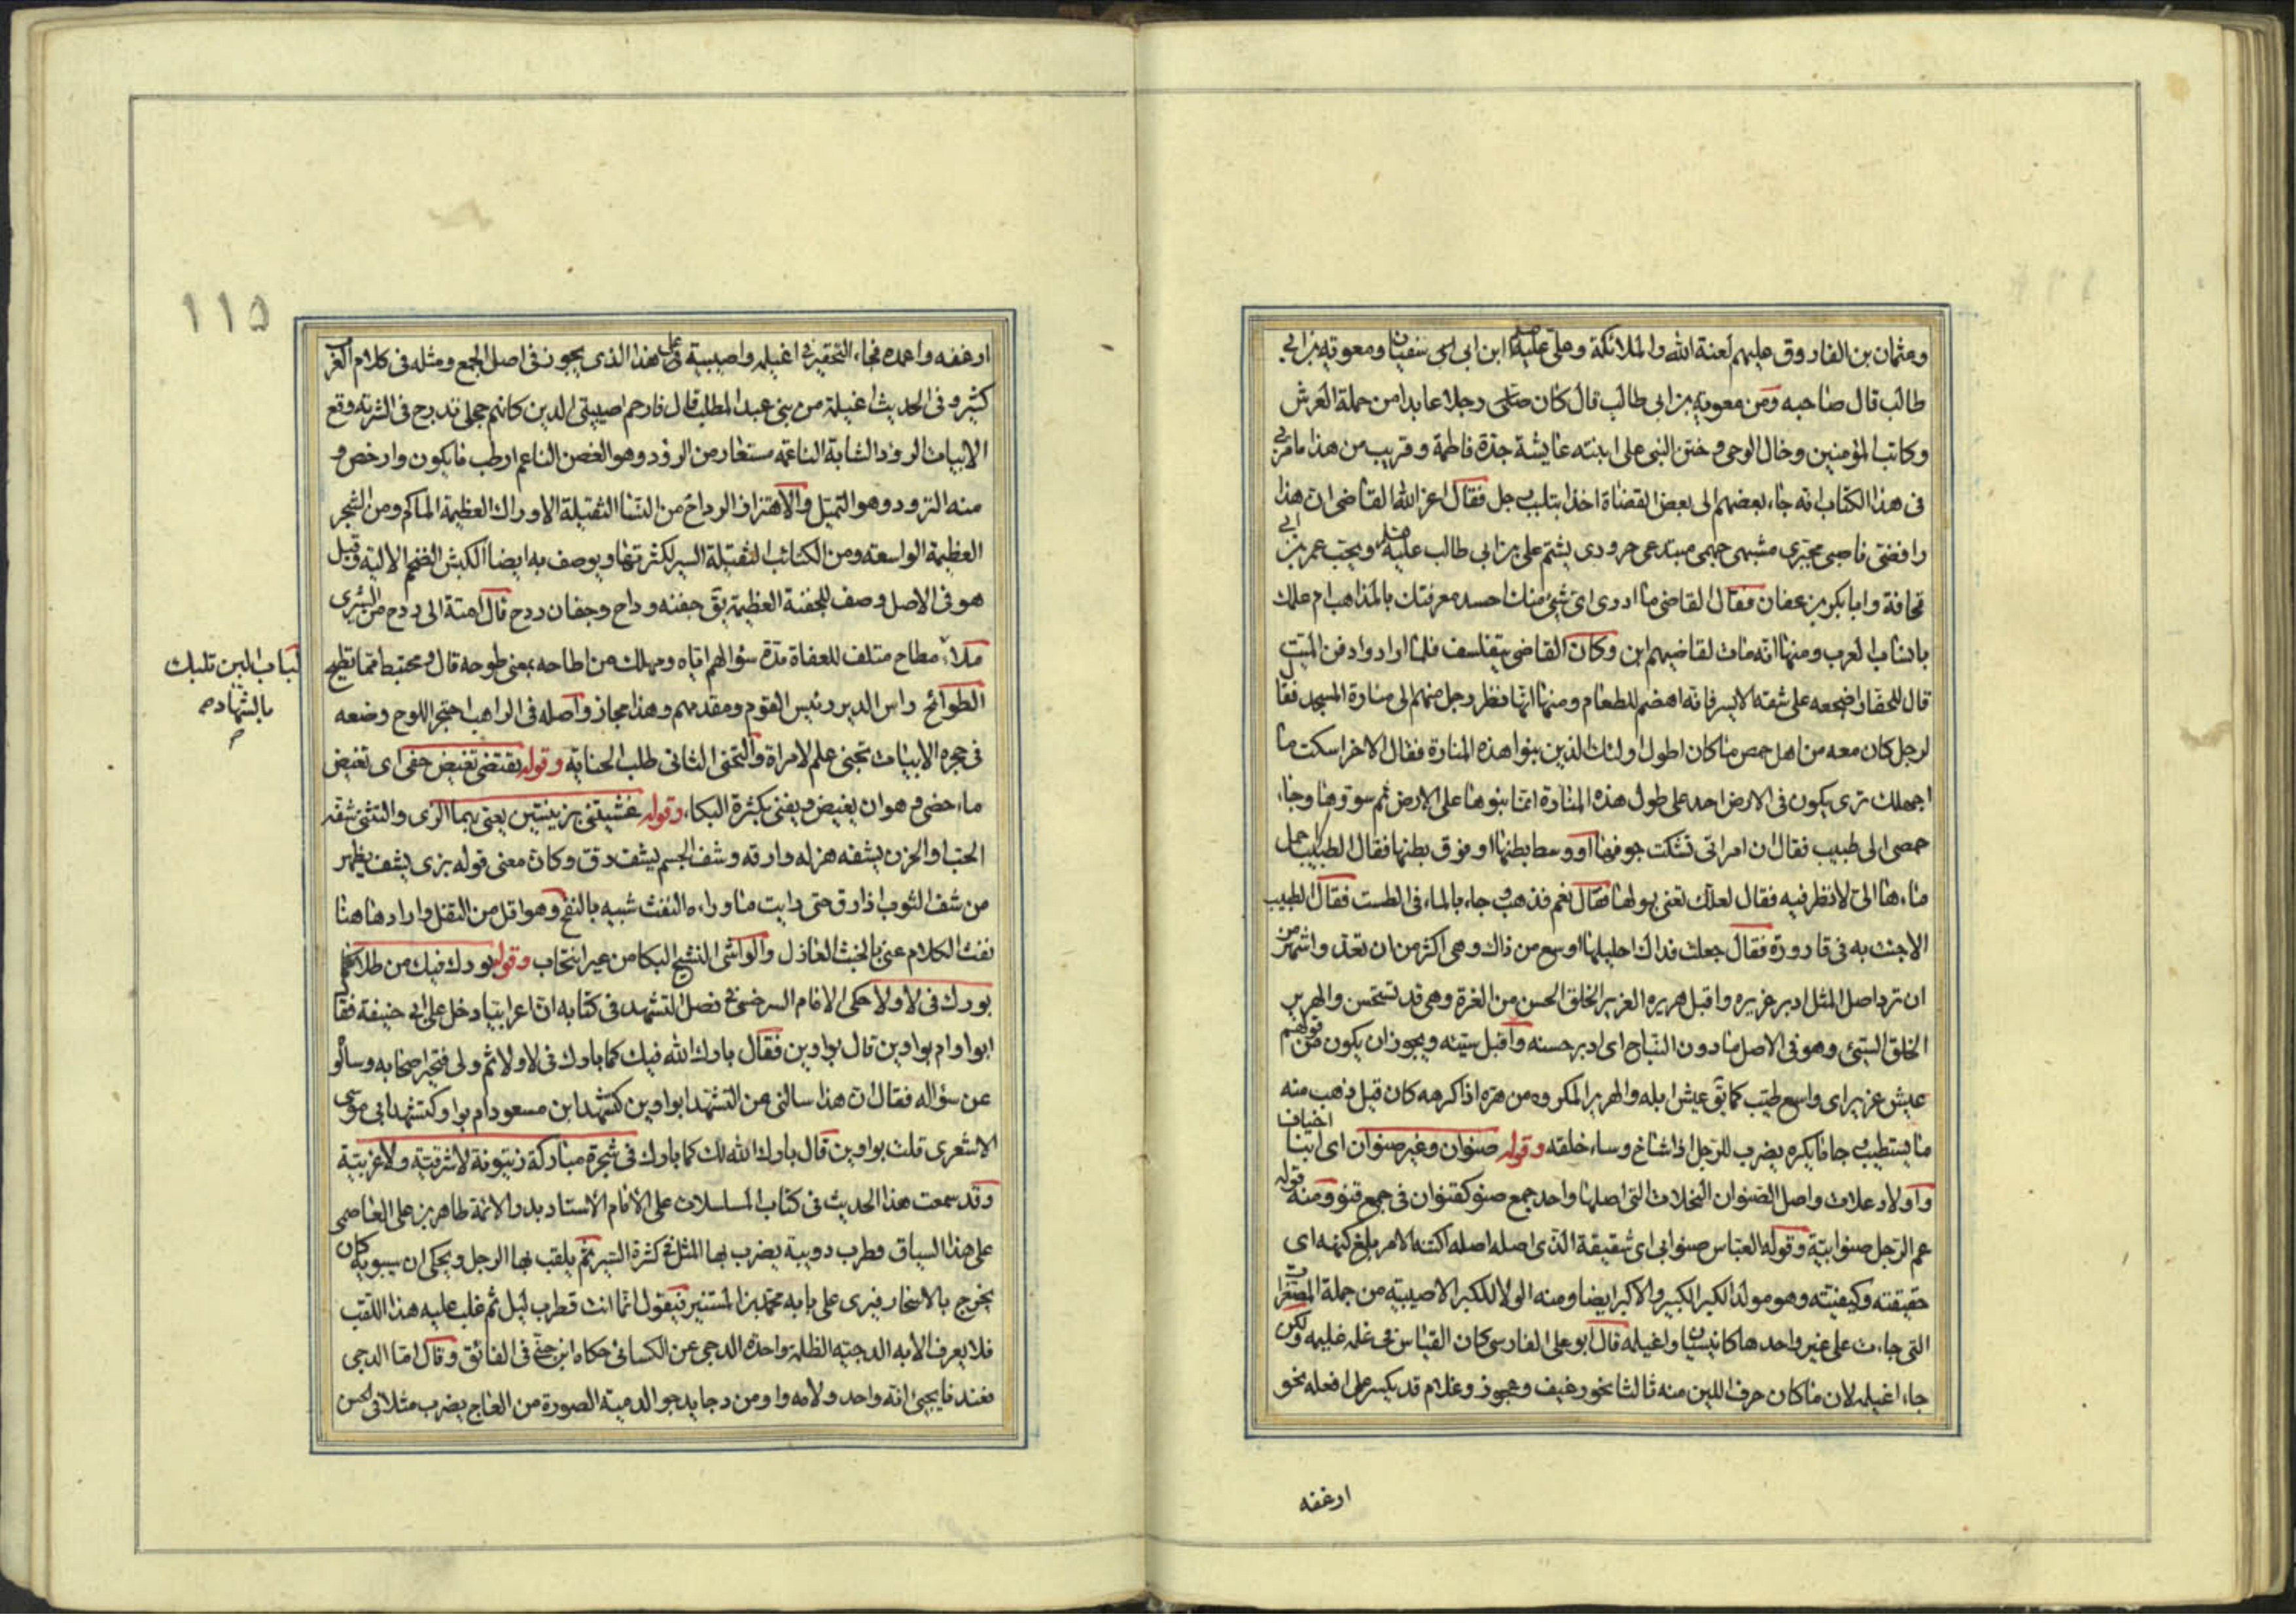 وعثمان بن الفاروق عليهم لعنة الله والملائكة وعلى على ابن ابى سفيان ومعوية بن ابي
طالب قال صاحبه ومن معوية بن ابى طالب قال كان رجلا عابدا من حملة العرش
وكاتب المؤمنين وخال الوحى وختن النبى على ابنته عايشة جدة فاطمة وقريب من هذا ما مر بي
فى هذا الكتاب انه جاء بعضهم الى بعض القضاة اخذا بتلبيب رجل فقال اعز الله القاضى ان هذا
رافضى ناصبى مجبرى مشبهى جهمى مبتدعى حرورى يشتم على بن ابى طالب ويحب عمر بن ابي
قحافة وابا بكر بن عفان فقال القاضى ما ادرى اى شئ منك احسد معرفتك بالمذاهب ام علمك
بانساب العرب ومنها انه مات لقاضيهم ابن وكان القاضى يتفلسف فلما ارادوا دفن الميت
قال للحفار اضجعه على شقه الايسر فانه اهضم للطعام ومنها انها نظر رجل منهم الى منارة المسجد فقال
لرجل كان معه من اهل حمص ما كان اطول اولئك الذين بنوا هذه المنارة فقال الاخر اسكت ما
اجهلك ترى يكون فى الارض احد على طول هذه المنارة انما بنوها على الارض ثم سووها وجاء
حمصى الى طبيب فقال ان امراتى تشكت جوفها او وسط بطنها او فوق بطنها فقال الطبيب احمل
ماءها الى لانظر فيه فقال لعلك تعنى بولها فقال نعم فذهب وجاء بالماء فى الطست فقال الطبيب
الا جئت به فى قارورة فقال جعلت فداك احليلها اوسع من ذاك وهى اكثر من ان تعد واشهر من
ان ترد اصل المثل ادبر غريره واقبل هريره الغرير الخلق الحسن من الغرة وهى قد تستحسن والهرير
الخلق السيئ وهو فى الاصل ما دون النباح اى ادبر حسنه واقبل سيئه ويجوز ان يكون من قولهم
عيش غرير اى واسع طيب كما يق عيش ابله والهرير المكروه من هره اذا كرهه كان قيل ذهب منه
ما يستطيب وجا ما يكره يضرب للرجل اذا شاخ وساء خلقه وقوله صنوان وغير صنوان اى ابنا اخياف
واولاد علات واصل الصنوان النخلات التى اصلها واحد جمع صنو كقنوان فى جمع قنو ومنه قوله
عم الرجل صنو ابيه وقوله العباس صنو ابى اى شقيقه الذى اصله اصله اكتنه الامر بلغ كنهه اى
حقيقته وكيفيته وهو مولد الكبر الكبير والاكبر ايضا ومنه الولا للكبر الاصيبية من جملة المصغرات
التى جاءت على غير واحدها كانيسيان واغيلمه قال ابو على الفارسى كان القياس فى غلمه غليمه ولكن
جاء اغيلمه لان ما كان حرف اللين منه ثالثا نحو رغيف وعجوز وغلام قد يكسر على افعله نحو
ارغفه
ارغفه واعمده فجاء التحقير فى اغيلمه واصيبية على هذا الذى يجوز فى اصل الجمع ومثله فى كلام العرب
كثير وفى الحديث اغيلمة من بنى عبد المطلب قال فارحم اصيبيتى الذين كانهم حجلى تدرج فى الشربه وقع
الابيات الرود الشابة الناعمة مستعار من الرؤد وهو الغصن الناعم ارطب ما يكون وارخص و
منه الترود وهو التميل والاهتزاز الرداح من النسا الثقيلة الاوراك العظيمة الماكم ومن الشجر
العظيمة الواسعه ومن الكتائب الثقيلة السير لكثرتها ويوصف به ايضا الكبش الضخم الالية وقيل
هو فى الاصل وصف للجفنة العظيمة يق جفنه رداح وجفان ردح قال امية الى ردح من الشيزى
ملاء مطاح متلف للعفاة مدة سؤالهم اياه ومهلك من اطاحه بمعنى طوحه قال ومختبط مما تطيح
الطوائح راس الدير رئيس القوم ومقدمهم وهذا مجاز واصله فى الراهب احتجر اللوح وضعه
فى حجره الابيات تجنى علم لامراة والتجنى الثانى طلب الجناية وقوله يقتضى تغيض جفنى اى تغيض
ماء جفنى وهو ان يغيض ويفنى بكثرة البكاء وقوله غشيتنى بزينتين يعنى بهما الزى والتثنى شفه
الحب او الحزن يشفه هزله وارقه وشف الجسم يشف دق وكان معنى قوله بزى يشف يظهر
من شف الثوب اذا رق حتى رايت ما وراءه النفث شبيه بالنفخ وهو اقل من التفل واراد ها هنا
نفث الكلام عنى بالخبث العاذل والواشى النشج البكا من غير انتحاب وقوله بورك فيك من طلا كما
بورك فى لا ولا حكى الامام السرخسى فى فصل التشهد فى كتابه ان اعرابيا دخل على ابى حنيفة فقال
ابواو ام بواوين قال بواوين فقال بارك الله فيك كما بارك فى لا ولا ثم ولى فتحير اصحابه وسألو
عن سؤاله فقال ان هذا سالنى عن التشهد ابواوين كتشهد ابن مسعود ام بواو كتشهد ابى موسى
الاشعرى قلت بواوين قال بارك الله لك كما بارك فى شجرة مباركة زيتونة لا شرقية ولا غربية
وقد سمعت هذا الحديث فى كتاب المسلسلات على الامام الاستاد بدر الائمة طاهر بن على العاصمى
على هذا السياق قطرب دويبة يضرب بها المثل فى كثرة السير ثم يلقب بها الرجل ويحكى ان سيبويه كان
يخرج بالاسحار فيرى على بابه محمد بن المستنير فيقول انما انت قطرب ليل ثم غلب عليه هذا اللقب
فلا يعرف الا به الدجيه الظلمة واحدة الدجى عن الكسائى حكاه ابن جنى فى الفائق وقال اما الدجى
فعندنا يجيئ انه واحد ولامه واو من دجا يدجو الدمية الصورة من العاج يضرب مثلا فى الحسن
لباب البن تلبك
بالشهاد
١١٥